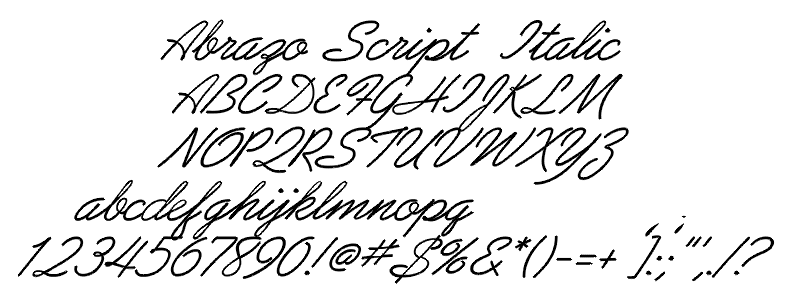 Abrazo Script Italic
ABCDEFGHIJKLM
NOPQRSTUVWXYZ
abcdefghijklmnopq
1234567890!@#$%&*()-=+ ];:;"',./?